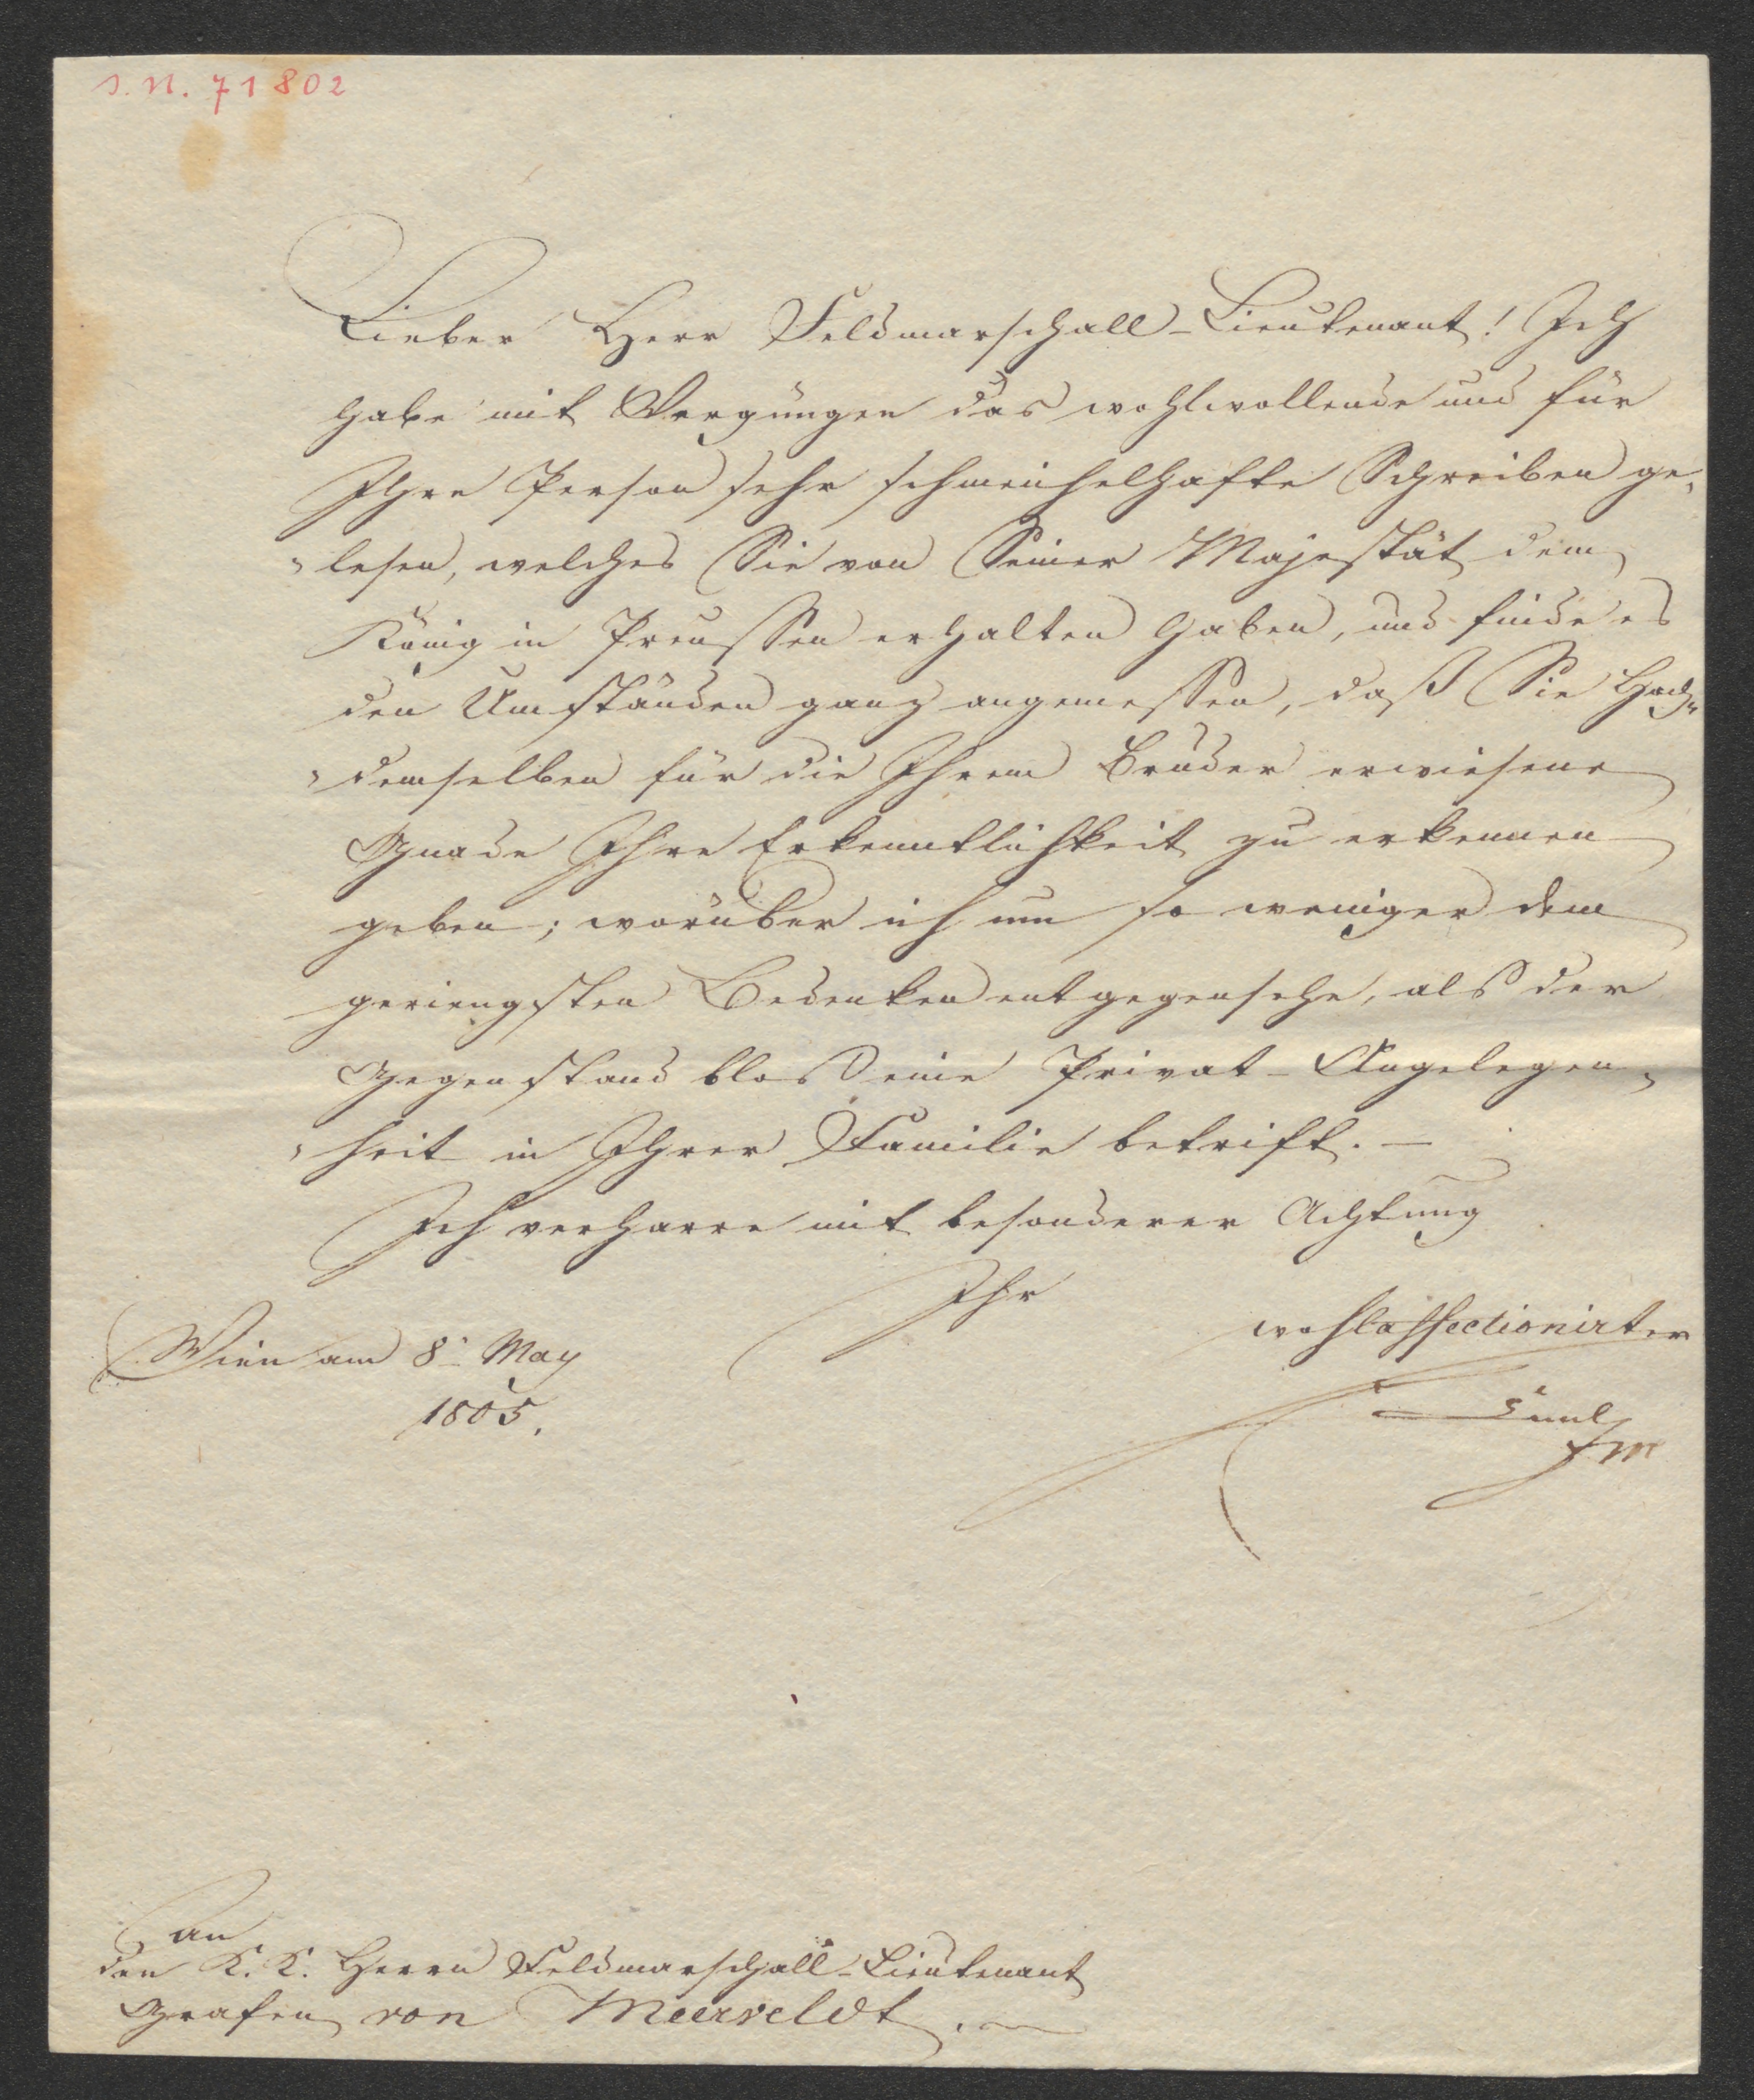 J. N. 71802
Lieber Herr Feldmarschall-Lieutenant! Ich
habe mit Vergnügen das wohlwollende und für
Ihre Person sehr schmeichelhafte Schreiben ge„
„lesen, welches Sie von Seiner Majestät dem
König in Preussen erhalten haben, und finde es
den Umständen ganz angemessen, daß Sie Hoch„
„demselben für die Ihrem Bruder erwiesene
Gnade Ihre Erkenntlichkeit zu erkennen
geben; worüber ich um so weniger dem
geringsten Bedenken entgegensehe, als der
Gegenstand blos eine Privat-Angelegen„
„heit in Ihrer Familie betrift. —
Ich verharre mit besonderer Achtung
Ihr
wohlaffectionirter
Wien am 8. May
1805.
Carl
FM
An
den K. K. Herrn Feldmarschall-Lieutenant
Grafen von Meerveldt. —